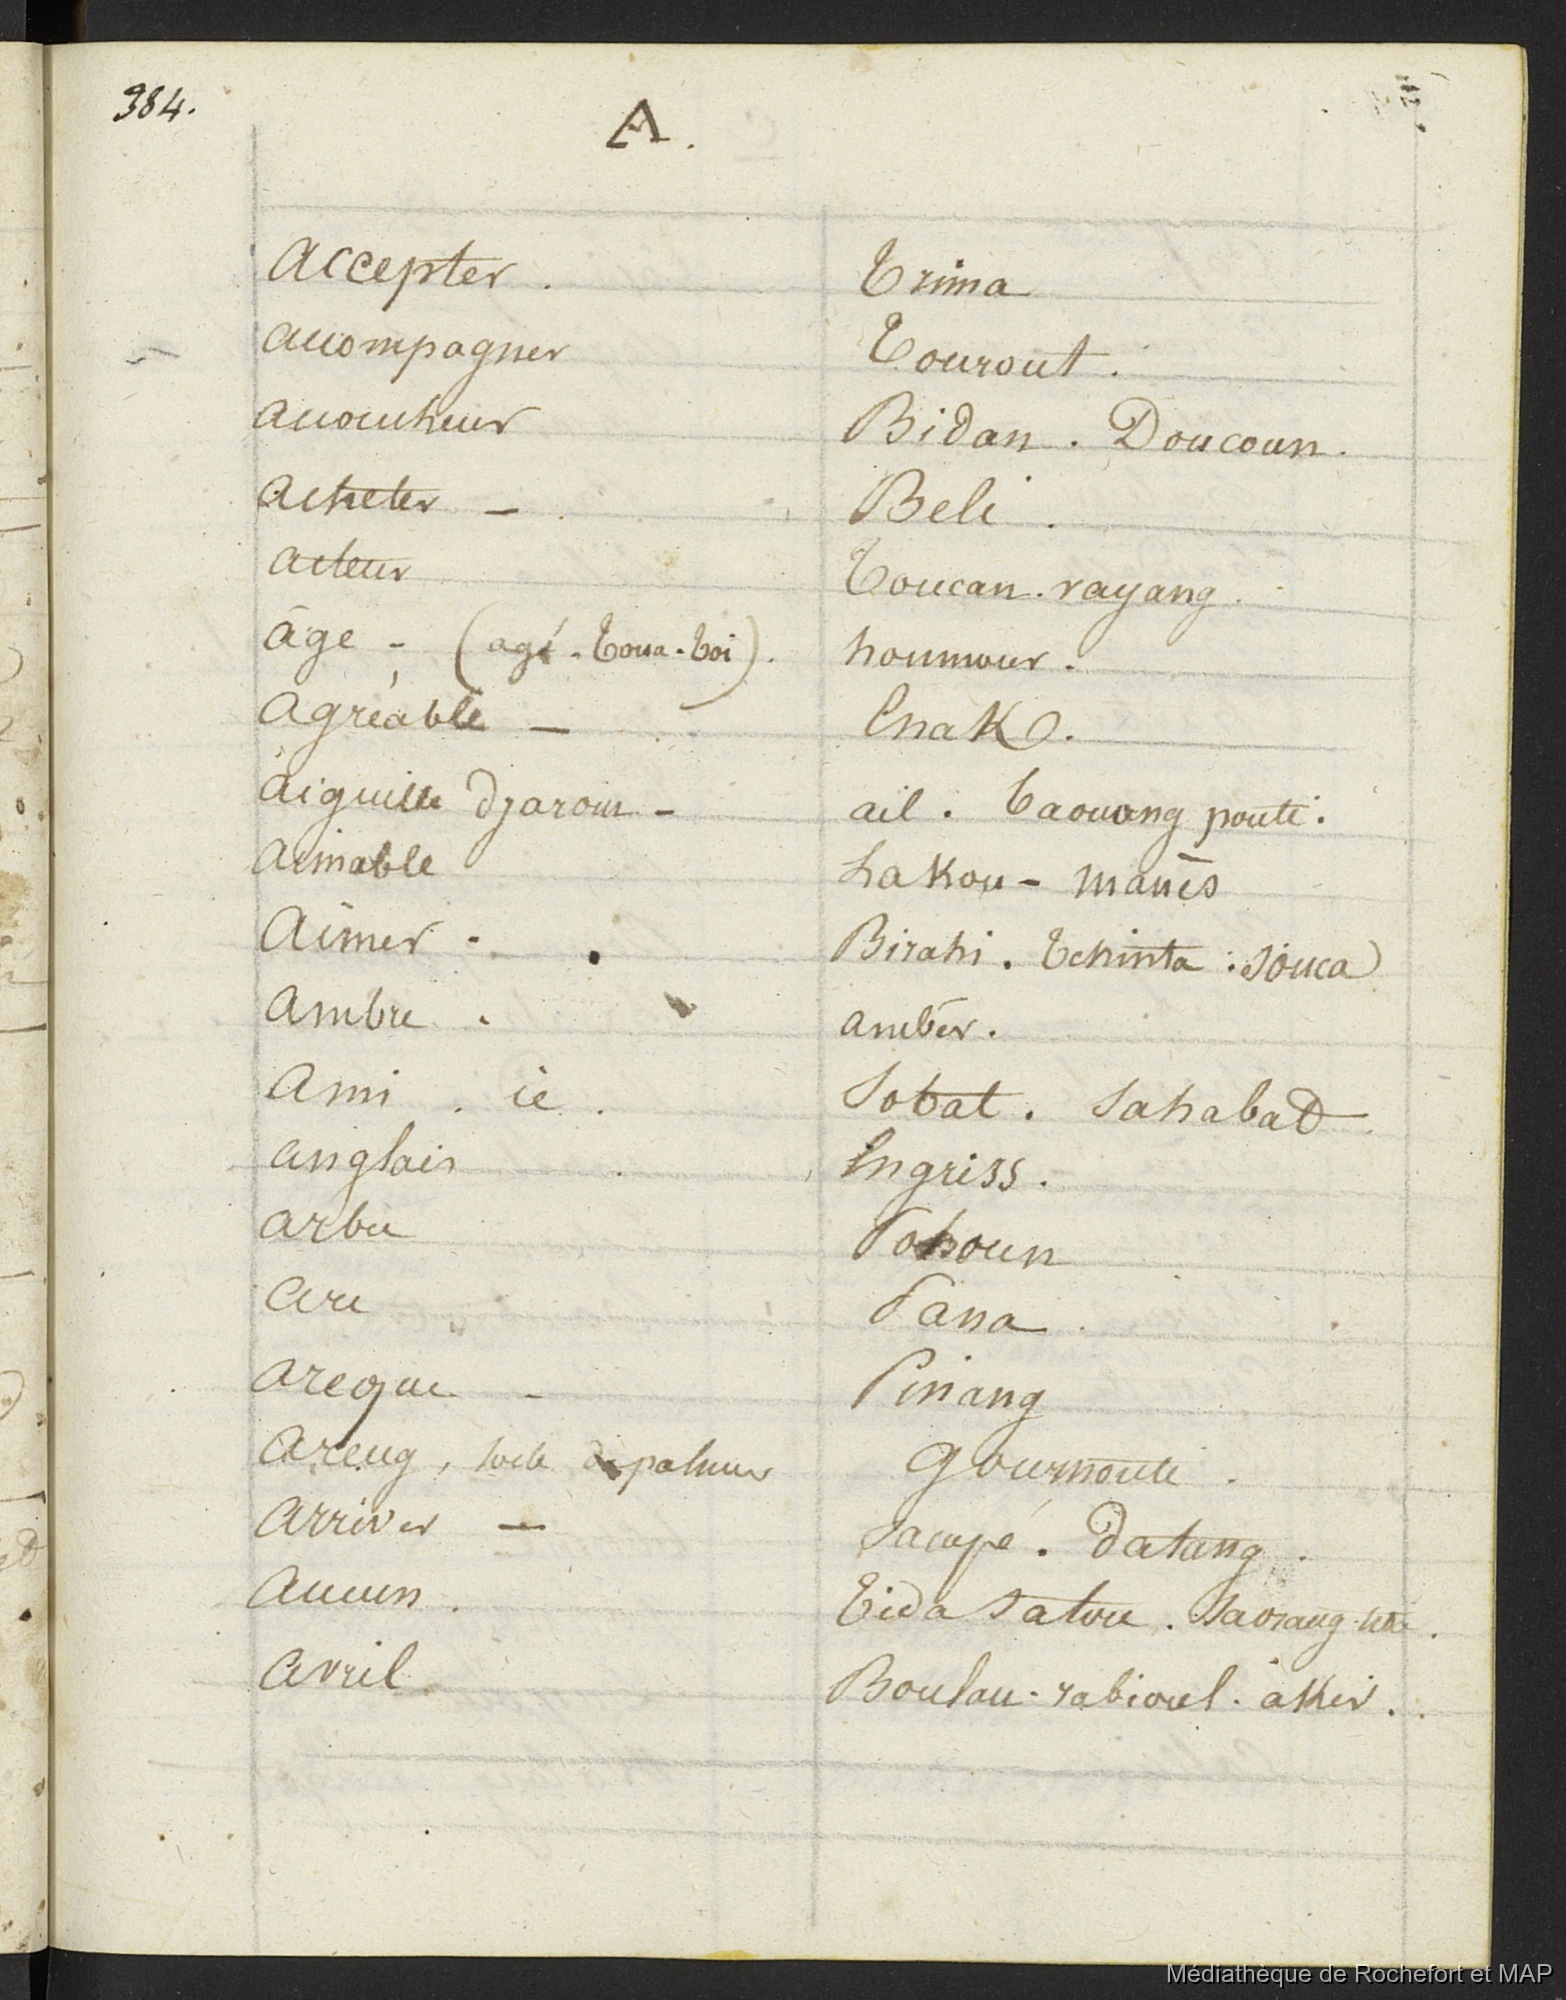 384.
A.
Accepter . Trima
accompagner Tourout .
accoucheur Bidan . Doucoun .
acheter - Beli .
acteur Toucan . rayang .
âge - (agé - toua - toi) . houmour .
agréable - Enak .
aiguille djaroum - ail . Baouang pouti .
aimable Lakou - manis
Aimer - Birahi . Tchinta : Souca
ambre . ambér .
Ami . ie . Sobat . Sahabad
anglais Ingriss .
arbre Pohoun
arc Pana .
areque - Pinang
Areng , sorte de palmier gourmouti .
arriver - Sampé . Datang .
Aucun . Tida satou .
avril Boulan - rabioul - akir .
Médiathèque de Rochefort et MAP